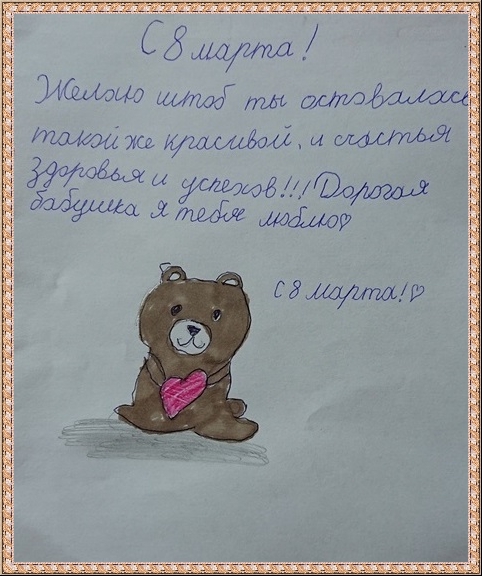 С 8 марта!
Желаю штоб ты оставалась
такой же красивой, и счастья
здоровья и успехов!!! Дорогая
бабушка я тебя люблю♡
С 8 марта!♡